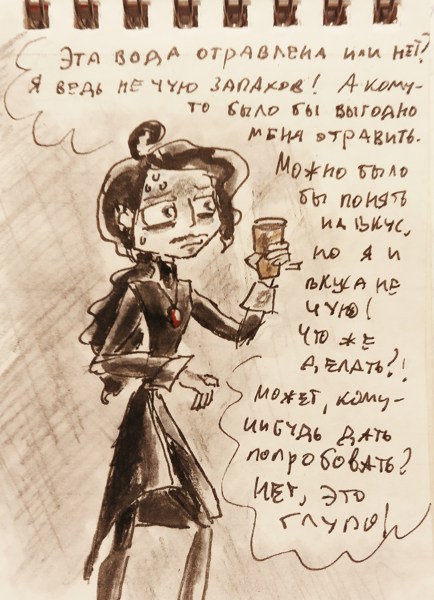 Эта вода отравлена или нет?
Я ведь не чую запахов! А кому-
то было бы выгодно
меня отравить.
Можно было
бы понять
на вкус,
но я и
вкуса не
чую!
Что же
делать?!
Может, кому-
нибудь дать
попробовать?
Нет, это
глупо!